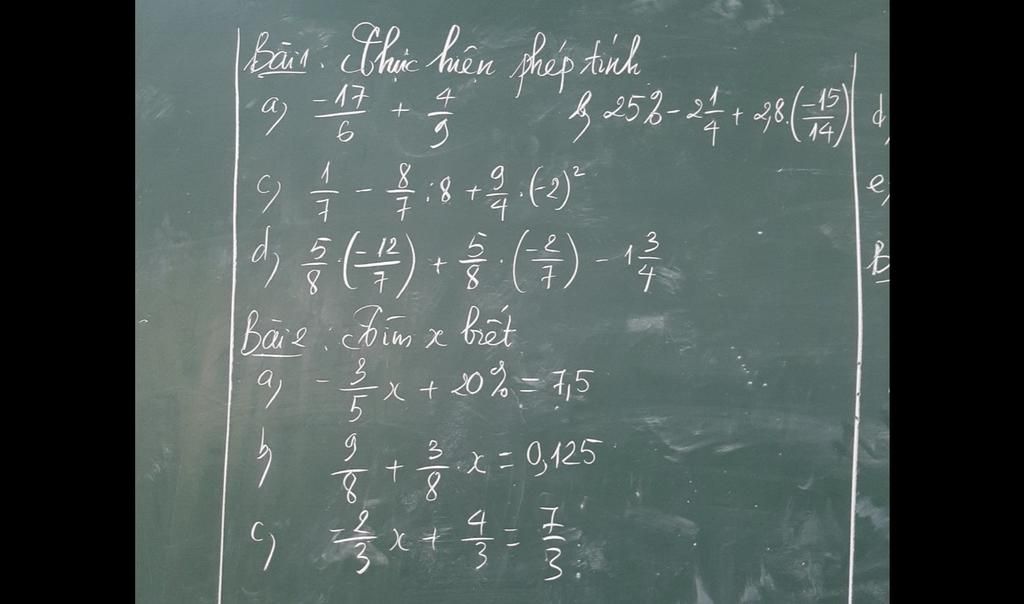 Bài 1: Thực hiện phép tính
a) -17/6 + 4/9 b) 25% - 2 1/4 + 2,8.(-15/14) d)
c) 1/7 - 8/7 : 8 + 9/4 . (-2)² e)
d) 5/8 . (-12/7) + 5/8 . (-2/7) - 1 3/4 B
Bài 2: Tìm x biết
a) - 3/5 x + 20% = 7,5
b) 9/8 + 3/8 . x = 0,125
c) -2/3 x + 4/3 = 7/3